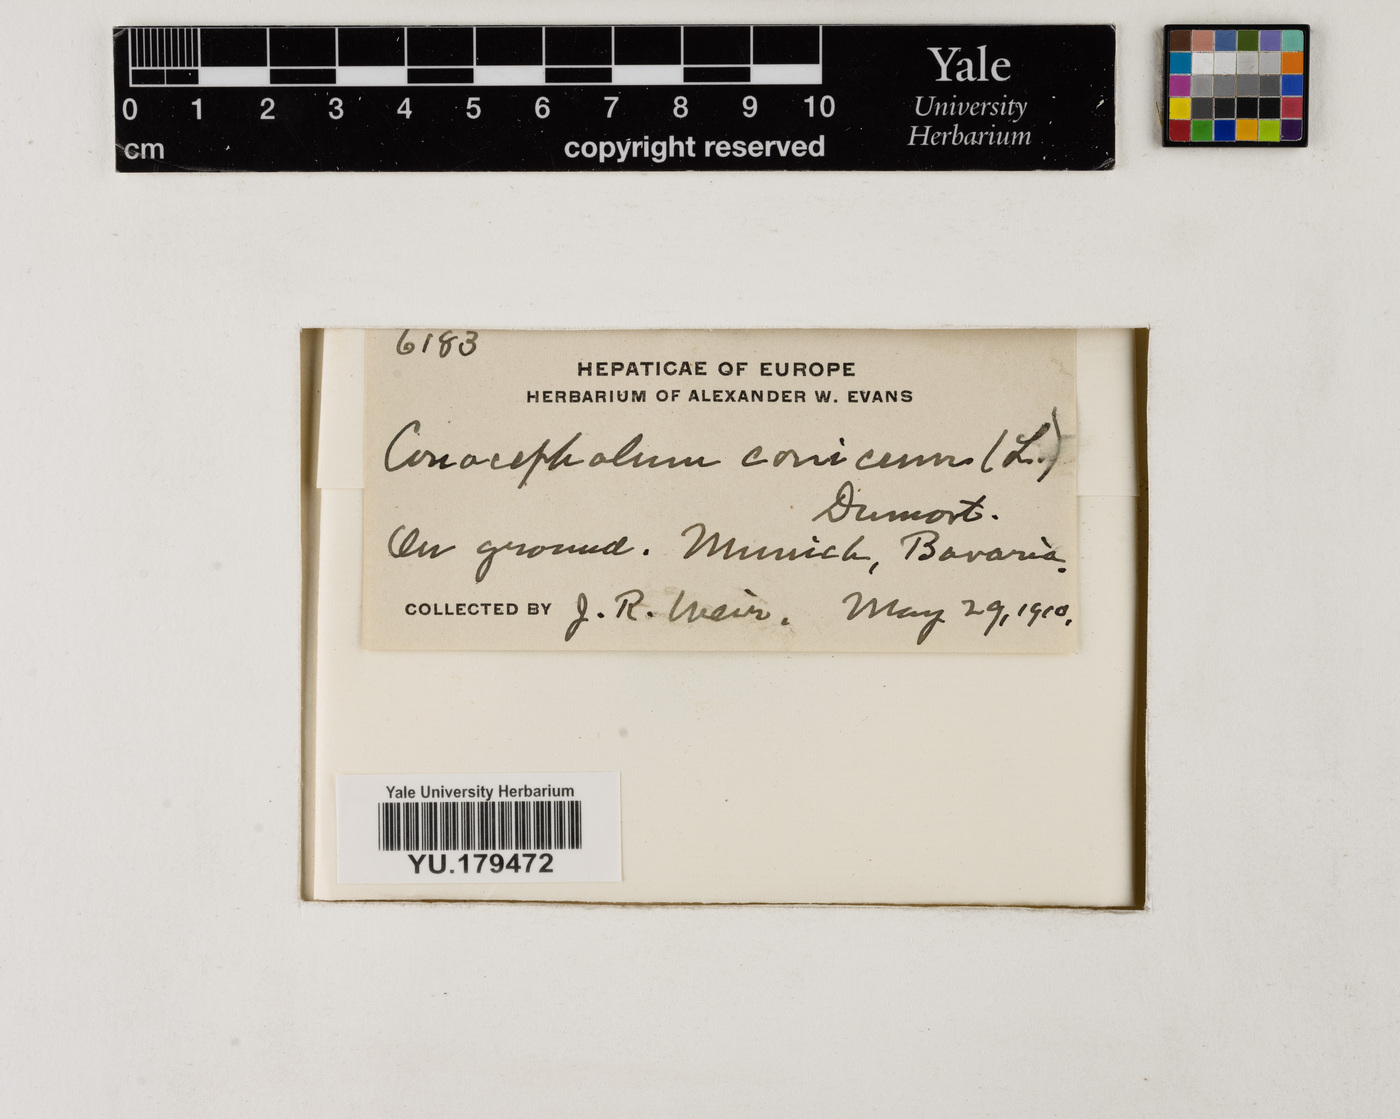 0 1 2 3 4 5 6 7 8 9 10
cm
copyright reserved
Yale
University
Herbarium
6183
HEPATICAE OF EUROPE
HERBARIUM OF ALEXANDER W. EVANS
Conocephalum conicum (L.)
Dumort.
On ground. Munich, Bavaria.
COLLECTED BY J. R. Weir. May 29, 1910.
Yale University Herbarium
YU.179472